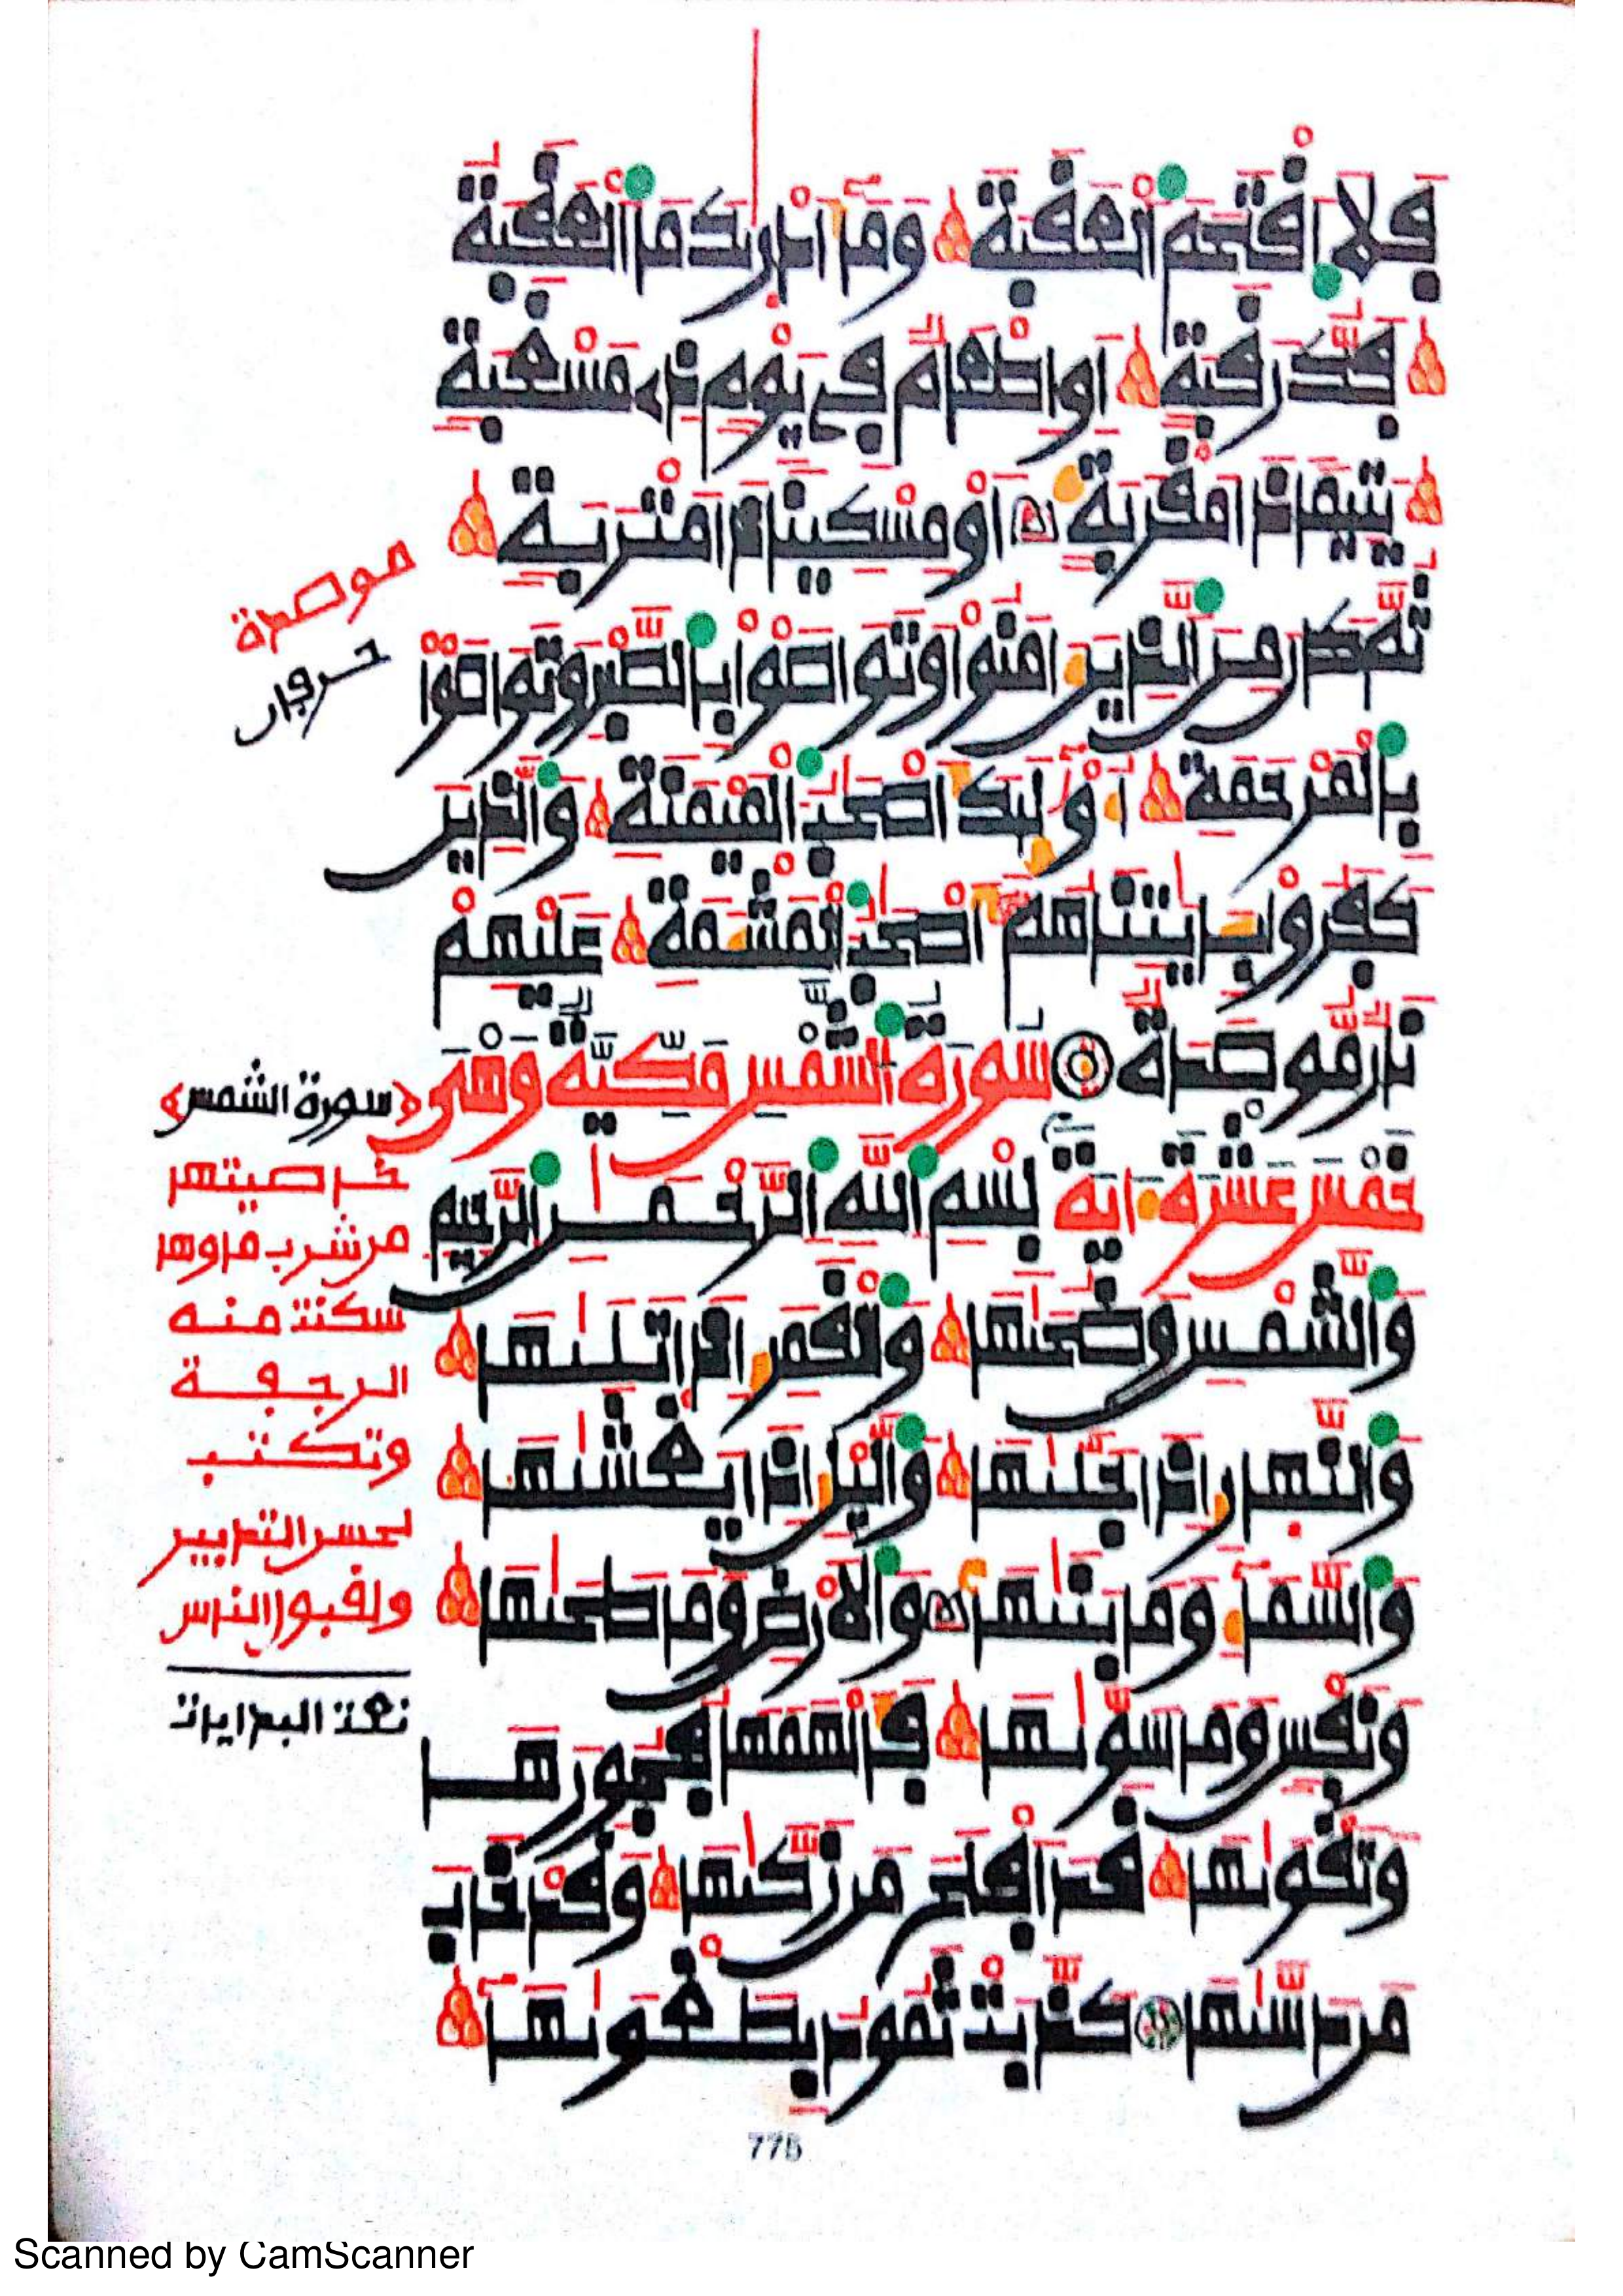 فَلَا اَفْتَحَمَ اَلْعَفَبَةَ وَمَآ أَدْرٜيٰكَ مَا اَلْعَفَبَةُ
فَكُّ رَفَبَةٍ أَوِ اِطْعَٰمٌ فِے يَوْمٍ ذِے مَسْغَبَةٍ
يَتِيماً ذَا مَفْرَبَةٍ أَوْ مِسْكِيناً ذَا مَتْرَبَةٍ
ثُمَّ كَانَ مِنَ اَلذِينَ ءَامَنُواْ وَتَوَاصَوْاْ بِالصَّبْرِ وَتَوَاصَوْاْ
بِالْمَرْحَمَةِ أُوْلَٰٓئِكَ أَصْحَٰبُ اَلْمَيْمَنَةِ وَالذِينَ
كَفَرُواْ بِـَٔايَٰتِنَا هُمُۥٓ أَصْحَٰبُ اَلْمَشْـَٔمَةِ عَلَيْهِمْ
نَارٌ مُّوصَدَةٌ سُورَةُ اَلشَّمْسِ مَكِّيَّةٌ وَهْىَ
خَمْسَ عَشْرَةَ ءَايَةً بِسْمِ اِللَّهِ اِلرَّحْمَٰنِ اِلرَّحِيمِ
وَالشَّمْسِ وَضُحَيٰهَا وَالْفَمَرِ إِذَا تَلَيٰهَا
وَالنَّهٜارِ إِذَا جَلَّيٰهَا وَاليْلِ إِذَا يَغْشَيٰهَا
وَالسَّمَآءِ وَمَا بَنَيٰهَا وَالَارْضِ وَمَا طَحَيٰهَا
وَنَفْسٍ وَمَا سَوَّيٰهَا فَأَلْهَمَهَا فُجُورَهَا
وَتَفْوَيٰهَا فَدَ اَفْلَحَ مَن زَكَّيٰهَا وَفَدْ خَابَ
مَن دَسَّيٰهَا كَذَّبَتْ ثَمُودُ بِطَغْوَيٰهَآ
775
موصدة
حرفان
﴿سورة الشمس﴾
خاصيتها
من شرب ماوها
سكنت منه
الرجفة
وتكتب
لحسن التدبير
ولفبول الناس
نعت البدايات
Scanned by CamScanner